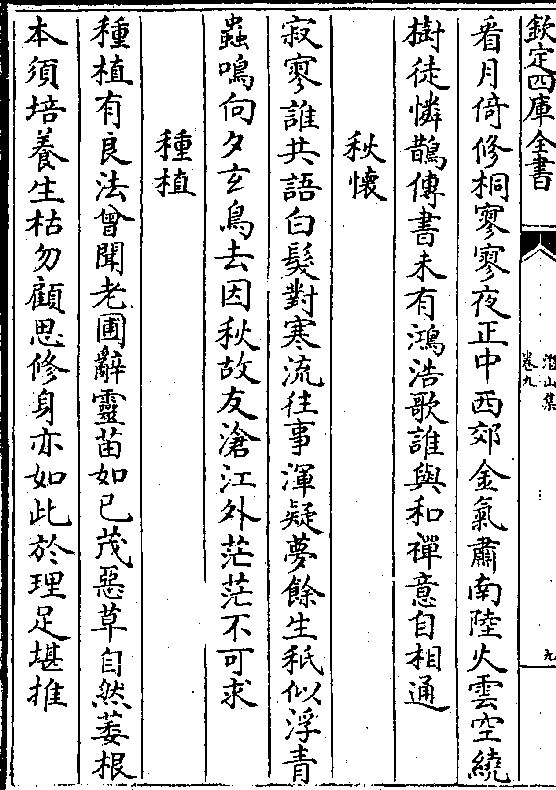 欽定四庫全書
潛山集
卷九
九
看月倚修桐寥寥夜正中西郊金氣肅南陸火雲空繞
樹徒憐鵲傳書未有鴻浩歌誰與和禪意自相通
秋懷
寂寥誰共語白髮對寒流往事渾疑夢餘生秖似浮青
蟲鳴向夕玄鳥去因秋故友滄江外茫茫不可求
種植
種植有良法曾聞老圃辭靈苗如已茂惡草自然萎根
本須培養生枯勿顧思修身亦如此於理足堪推